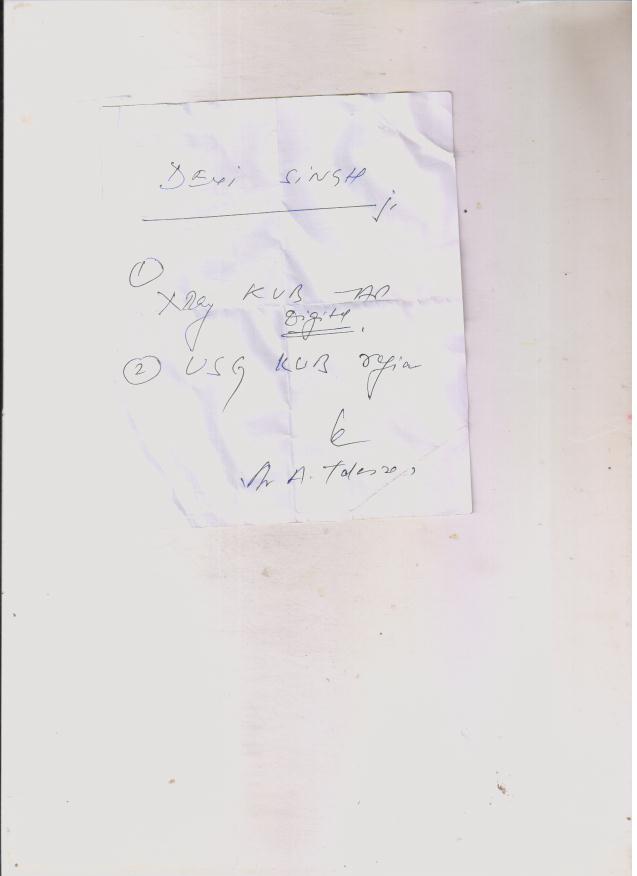 DEvi SiNGH
ji
①
XRay KUB AP
Digital.
② USG KUB region
Dr A.